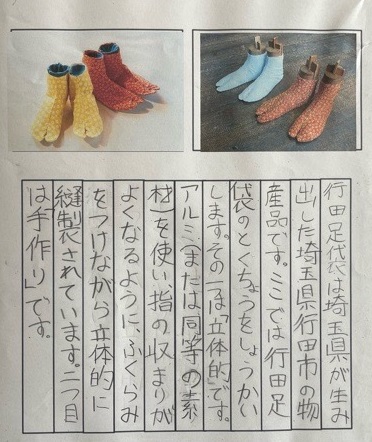 行田足袋は埼玉県が生み
出した埼玉県行田市の物
産品です。ここでは行田足
袋のとくちょうをしょうかい
します。その一は「立体的」です。
アルミまたは同等の素
材を使い、指の収まりが
よくなるように、ふくらみ
をつけながら立体的に
縫製されています。二つ目
は「手作り」です。